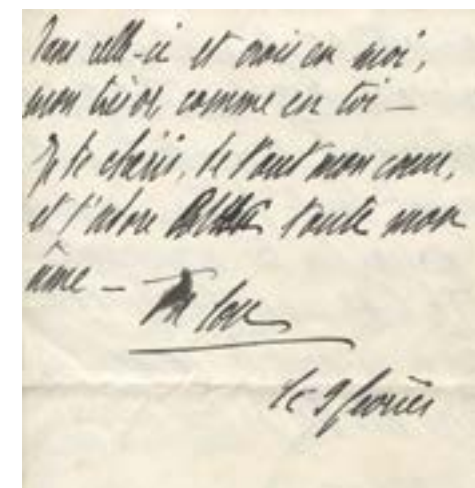 dans celle-ci et crois en moi,
mon trésor, comme en toi —
Je te chéris, de tout mon cœur,
et t'adore toute mon
âme —
Ton Lou
le 9 février